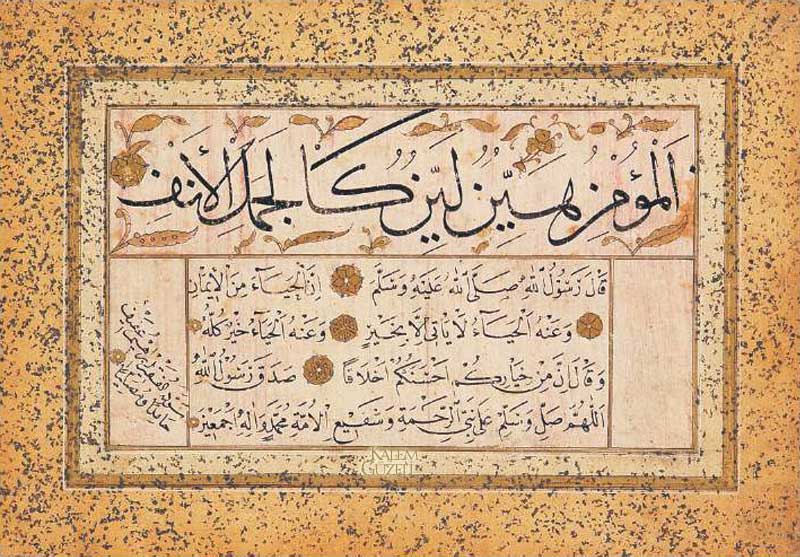 المؤمن هين لين كالجمل الأنف
قال رسول الله صلى الله عليه وسلم إن الحياء من الإيمان
وعنه الحياء لا يأتي إلا بخير وعنه الحياء خير كله
وقال إن من خياركم احسنكم اخلاقا صدق رسول الله
اللهم صل وسلم على نبي الرحمة وشفيع الأمة محمد وآله اجمعين
KALEM
GÜZELİ